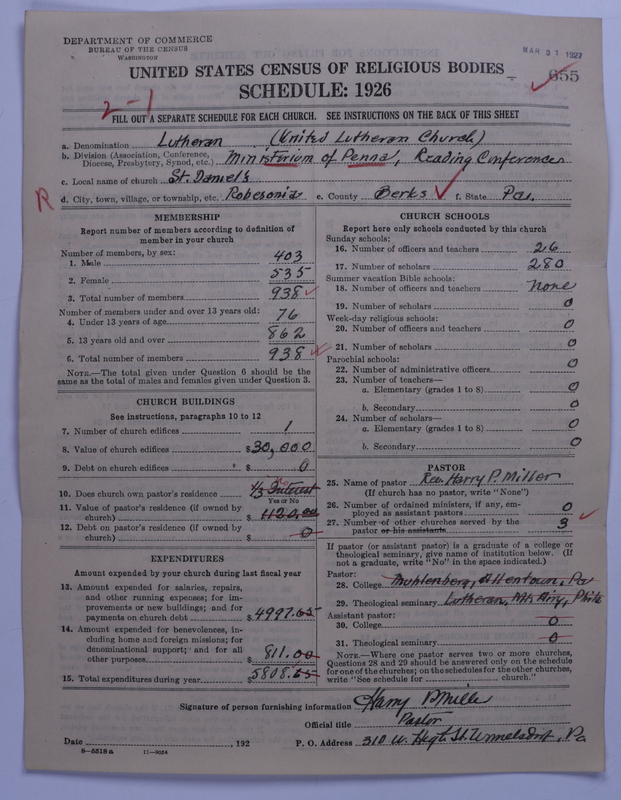 DEPARTMENT OF COMMERCE
BUREAU OF THE CENSUS
WASHINGTON
MAR 31 1927
UNITED STATES CENSUS OF RELIGIOUS BODIES
655
SCHEDULE: 1926
2-1
FILL OUT A SEPARATE SCHEDULE FOR EACH CHURCH. SEE INSTRUCTIONS ON THE BACK OF THIS SHEET
a. Denomination Lutheran (United Lutheran Church)
b. Division (Association, Conference, Diocese, Presbytery, Synod, etc.) Ministerium of Penna, Reading Conference
c. Local name of church St. Daniel's
R
d. City, town, village, or township, etc. Robesonia e. County Berks f. State Pa.
MEMBERSHIP
Report number of members according to definition of
member in your church
Number of members, by sex:
1. Male 403
2. Female 535
3. Total number of members 938
Number of members under and over 13 years old:
4. Under 13 years of age 76
5. 13 years old and over 862
6. Total number of members 938
NOTE.—The total given under Question 6 should be the
same as the total of males and females given under Question 3.
CHURCH BUILDINGS
See instructions, paragraphs 10 to 12
7. Number of church edifices 1
8. Value of church edifices $30,000
9. Debt on church edifices $ 0
10. Does church own pastor's residence 1/3 Interest
Yes or No
11. Value of pastor's residence (if owned by
church) $ 1120.00
12. Debt on pastor's residence (if owned by
church) $ 0
EXPENDITURES
Amount expended by your church during last fiscal year
13. Amount expended for salaries, repairs,
and other running expenses; for im-
provements or new buildings; and for
payments on church debt $4997.65
14. Amount expended for benevolences, in-
cluding home and foreign missions; for
denominational support; and for all
other purposes $811.00
15. Total expenditures during year $5808.65
CHURCH SCHOOLS
Report here only schools conducted by this church
Sunday schools:
16. Number of officers and teachers 26
17. Number of scholars 280
Summer vacation Bible schools:
18. Number of officers and teachers None
19. Number of scholars 0
Week-day religious schools:
20. Number of officers and teachers 0
21. Number of scholars 0
Parochial schools:
22. Number of administrative officers 0
23. Number of teachers—
a. Elementary (grades 1 to 8) 0
b. Secondary 0
24. Number of scholars—
a. Elementary (grades 1 to 8) 0
b. Secondary 0
PASTOR
25. Name of pastor Rev. Harry P. Miller
(If church has no pastor, write "None")
26. Number of ordained ministers, if any, em-
ployed as assistant pastors 0
27. Number of other churches served by the
pastor or his assistants 3
If pastor (or assistant pastor) is a graduate of a college or
theological seminary, give name of institution below. (If
not a graduate, write "No" in the space indicated.)
Pastor:
28. College Muhlenberg, Allentown, Pa
29. Theological seminary Lutheran, Mt. Airy, Phila
Assistant pastor:
30. College 0
31. Theological seminary 0
NOTE.—Where one pastor serves two or more churches,
Questions 28 and 29 should be answered only on the schedule
for one of the churches; on the schedules for the other churches,
write "See schedule for church."
Signature of person furnishing information Harry P Miller
Official title Pastor
Date , 192 P. O. Address 310 W. High St. Womelsdorf, Pa
8-5518a 11-9034